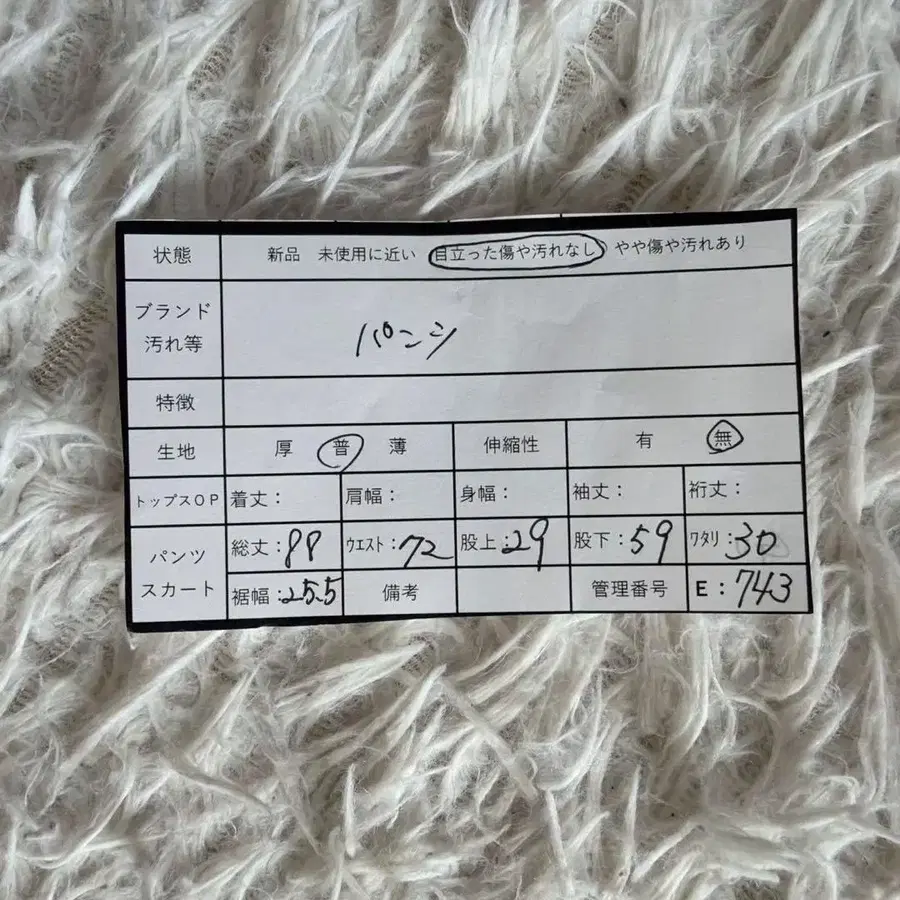 状態 新品 未使用に近い 目立った傷や汚れなし やや傷や汚れあり
ブランド
汚れ等
パンツ
特徴
生地 厚 普 薄 伸縮性 有 無
トップスOP 着丈: 肩幅: 身幅: 袖丈: 裄丈:
パンツ
スカート
総丈:88 ウエスト:72 股上:29 股下:59 ワタリ:30
裾幅:25.5 備考 管理番号 E:743